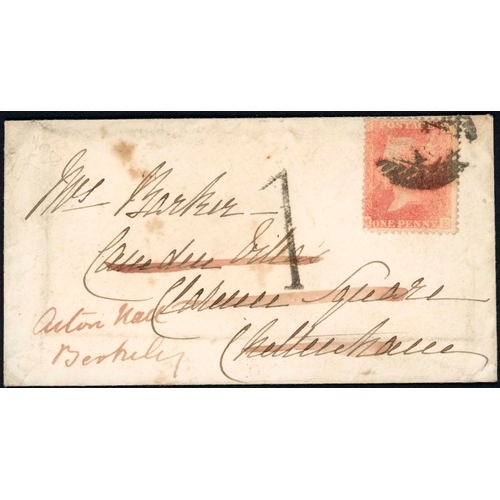 POSTAGE
ONE PENNY
1
Mrs Barker
Camden Villa
Clarence Square
Cheltenham
Acton Hall
Berkeley